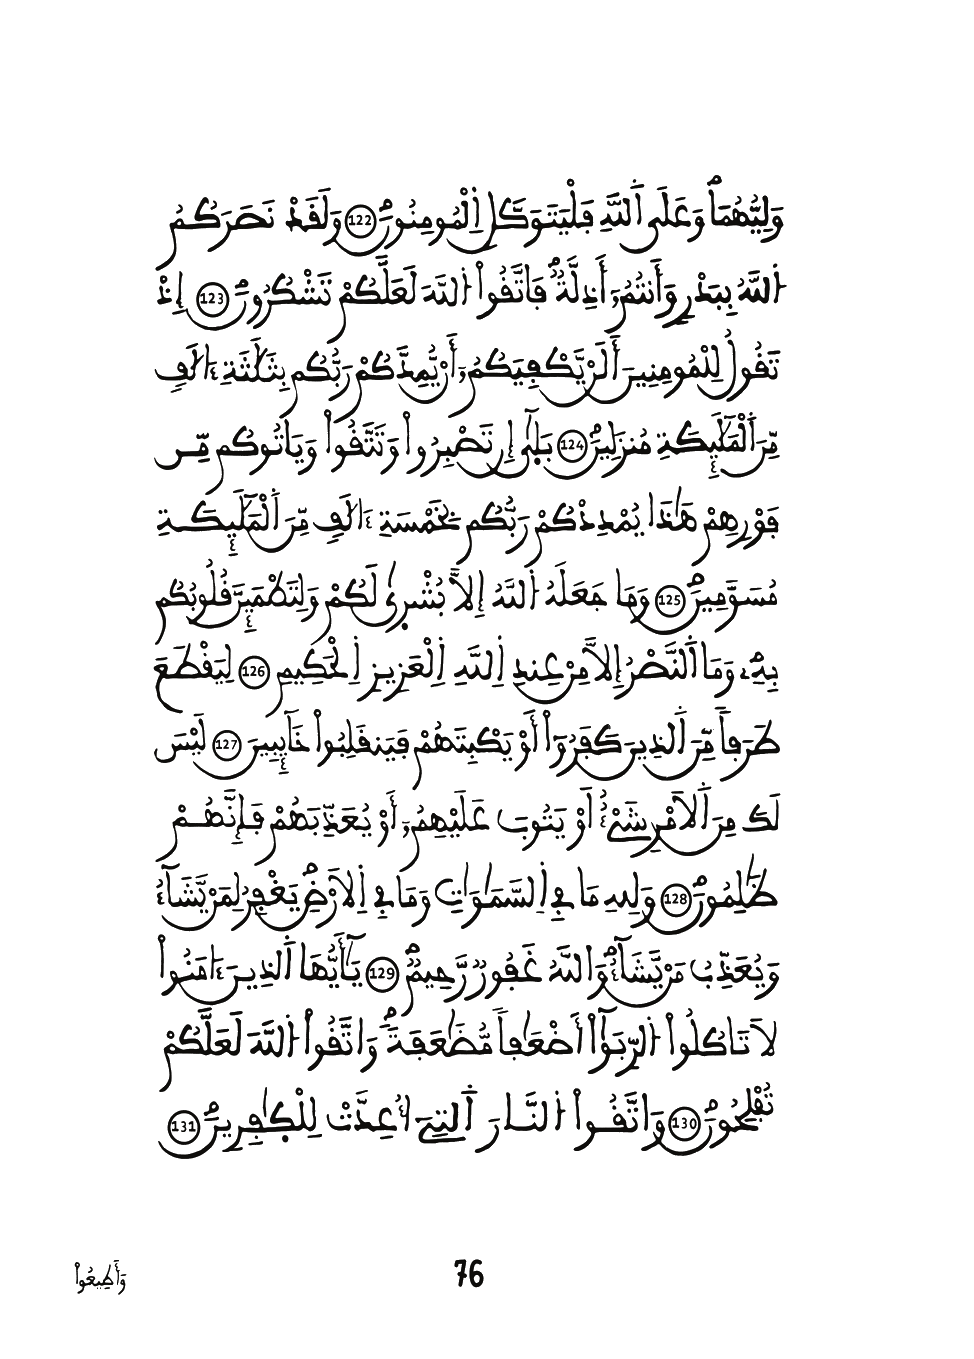 وَلِيُّهُمَاۖ وَعَلَى اَ۬للَّهِ فَلْيَتَوَكَّلِ اِ۬لْمُومِنُونَۖ 122 وَلَقَدْ نَصَرَكُمُ
اُ۬للَّهُ بِبَدْرٖ وَأَنتُمُۥٓ أَذِلَّةٞۖ فَاتَّقُوا۟ اُ۬للَّهَ لَعَلَّكُمْ تَشْكُرُونَۖ 123 إِذْ
تَقُولُ لِلْمُومِنِينَ أَلَنْ يَّكْفِيَكُمُۥٓ أَنْ يُّمِدَّكُمْ رَبُّكُم بِثَلَٰثَةِ ءَالَٰفٖ
مِّنَ اَ۬لْمَلَٰٓئِكَةِ مُنزَلِينَۖ 124 بَلَىٰٓ إِن تَصْبِرُوا۟ وَتَتَّقُوا۟ وَيَاتُوكُم مِّن
فَوْرِهِمْ هَٰذَا يُمْدِدْكُمْ رَبُّكُم بِخَمْسَةِ ءَالَٰفٖ مِّنَ اَ۬لْمَلَٰٓئِكَةِ
مُسَوَّمِينَۖ 125 وَمَا جَعَلَهُ اُ۬للَّهُ إِلَّا بُشْر۪ىٰ لَكُمْ وَلِتَطْمَئِنَّ قُلُوبُكُم
بِهِۦۖ وَمَا اَ۬لنَّصْرُ إِلَّا مِنْ عِندِ اِ۬للَّهِ اِ۬لْعَزِيزِ اِ۬لْحَكِيمِ 126 لِيَقْطَعَ
طَرَفاٗ مِّنَ اَ۬لذِينَ كَفَرُوٓا۟ أَوْ يَكْبِتَهُمْ فَيَنقَلِبُوا۟ خَآئِبِينَ 127 لَيْسَ
لَكَ مِنَ اَ۬لْأَمْرِ شَےْءٌ أَوْ يَتُوبَ عَلَيْهِمُۥٓ أَوْ يُعَذِّبَهُمْ فَإِنَّهُمْ
ظَٰلِمُونَۖ 128 وَلِلهِ مَا فِے اِ۬لسَّمَٰوَٰتِ وَمَا فِے اِ۬لْأَرْضِۖ يَغْفِرُ لِمَنْ يَّشَآءُ
وَيُعَذِّبُ مَنْ يَّشَآءُۖ وَاللَّهُ غَفُورٞ رَّحِيمٞۖ 129 يَٰٓأَيُّهَا اَ۬لذِينَ ءَامَنُوا۟
لَا تَاكُلُوا۟ اُ۬لرِّبَوٰٓا۟ أَضْعَٰفاٗ مُّضَٰعَفَةٗۖ وَاتَّقُوا۟ اُ۬للَّهَ لَعَلَّكُمْ
تُفْلِحُونَۖ 130 وَاتَّقُوا۟ اُ۬لنَّارَ اَ۬لتِےٓ أُعِدَّتْ لِلْكٰ۪فِرِينَۖ 131
76
وَأَطِيعُوا۟